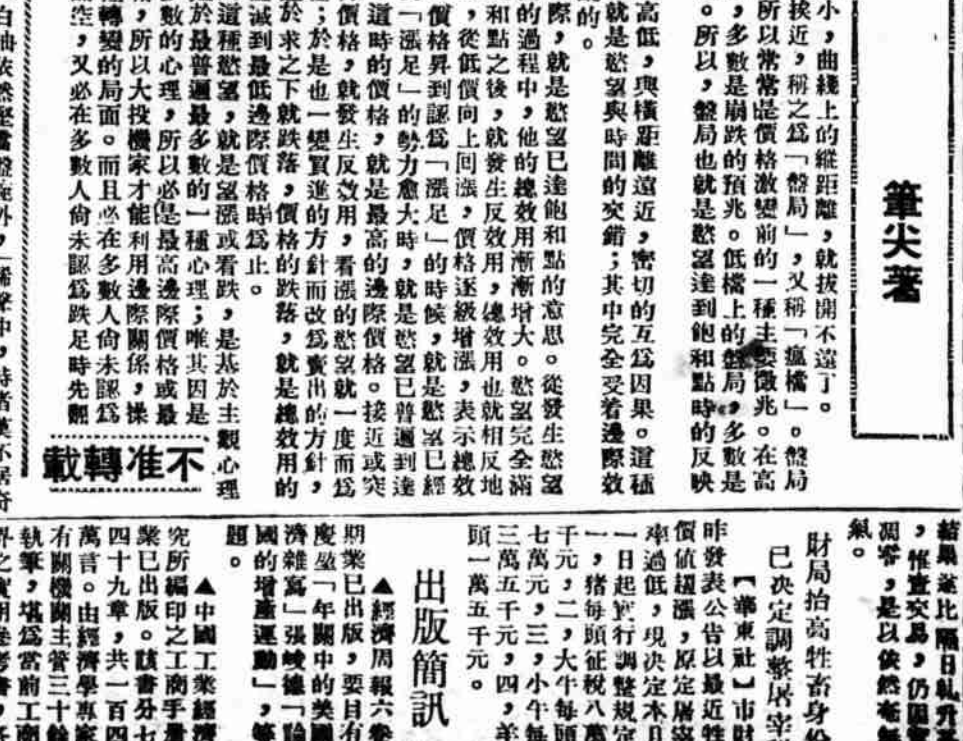 筆尖著
小,曲綫上的縱距離,就拔開不遠了。
挨近,稱之爲「盤局」,又稱「瘟檔」。盤局
所以常常是價格激變前的一種主要徵兆。在高
,多數是崩跌的預兆。低檔上的盤局,多數是
。所以,盤局也就是慾望達到飽和點時的反映
高低,與橫距離遠近,密切的互爲因果。這種
就是慾望與時間的交錯;其中完全受着邊際效
的。
際,就是慾望已達飽和點的意思。從發生慾望
的過程中,他的總效用漸漸增大。慾望完全滿
和點之後,就發生反效用,總效用也就相反地
,從低價向上回漲,價格逐級增漲,表示總效
價格昇到認爲「漲足」的時候,就是慾望已經
「漲足」的勢力愈大時,就是慾望已普遍到達
這時的價格,就是最高的邊際價格。接近或突
價格,就發生反效用,看漲的慾望就一度而爲
;於是也一變買進的方針而改爲賣出的方針,
於求之下就跌落,價格的跌落,就是總效用的
減到最低邊際價格時爲止。
這種慾望,就是望漲或看跌,是基於主觀心理
於最普遍最多數的一種心理;唯其因是
數的心理,所以必是最高邊際價格或最
,所以大投機家才能利用邊際關係,操
轉變的局面。而且必在多數人尚未認爲
空,又必在多數人尚未認爲跌足時先翻
不准轉載
結果遂比隔日軋升
,惟查交易,仍因
凋零,是以依然毫無
氣。
財局抬高牲畜身份
已决定調整屠宰
【華東社】市財
昨發表公告以最近牲
價値超漲,原定屠宰
率過低,現决定本月
一日起實行調整規定
一,猪每頭征稅八萬
千元,二,大牛每頭
七萬元,三,小牛每
三萬五千元,四,羊
頭一萬五千元。
出版簡訊
▲經濟周報六卷
期業已出版,要目有
「年關中的美國
濟雜寫」張峻德「論
國的增產運動」,等
題。
▲中國工業經濟
究所編印之工商手册
業已出版。該書分七
四十九章,共一百四
萬言。由經濟學專家
有關機關主管三十餘
執筆,堪爲當前工商